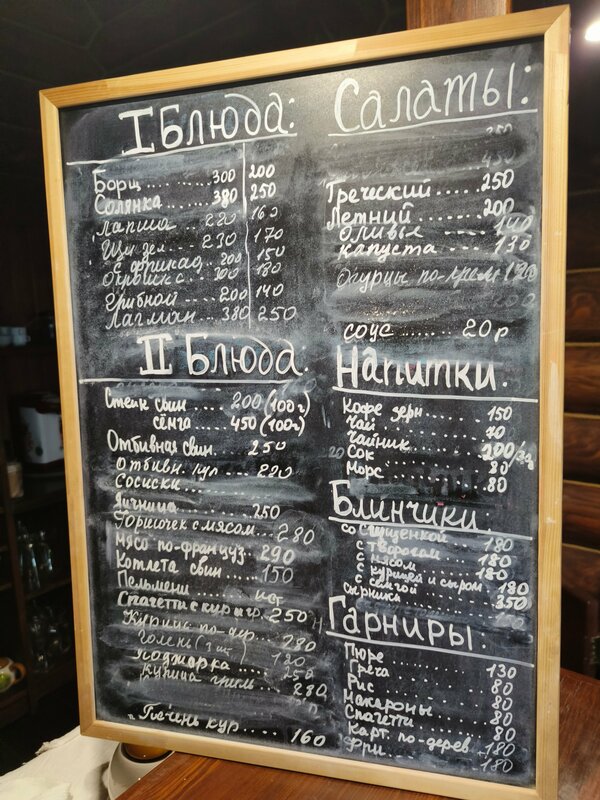 I Блюда:
Борщ .......... 300 200
Солянка ....... 380 250
Лапша ..... 220 160
Щи зел ... 230 170
с фрикад.. 200 150
300 180
Грибной ..... 200 140
Лагман .... 380 250
II Блюда.
Стейк свин .... 200 (100г)
сёмга .... 450 (100г)
Отбивная свин. 250
Отбивн. кур .... 220
Сосиски
Яичница ........ 250
Горшочек с мясом... 280
Мясо по-француз.. 290
Котлета свин .... 150
Пельмени
Спагетти с кур и гр. 250
280
Голень (3 шт) 120
Поджарка ..... 250
курица гриль... 280
Печень кур.... 160
Салаты:
Греческий ..... 250
Летний ...... 200
Оливье ...... 140
капуста ..... 130
Огурцы по-
соус ....... 20 р
Напитки.
Кофе зерн ...... 150
Чай ............ 70
Чайник ........ 200
Сок ............ 80
Морс .......... 80
Блинчики.
со сгущенкой .... 180
с творогом ..... 180
с мясом ....... 180
с курицей и сыром . 180
с сёмгой ....... 350
сырники
Гарниры:
Пюре ......... 130
Греча ......... 80
Рис .......... 80
Макароны ..... 80
Спагетти ..... 80
Карт. по-дерев . 180
Фри ......... 180